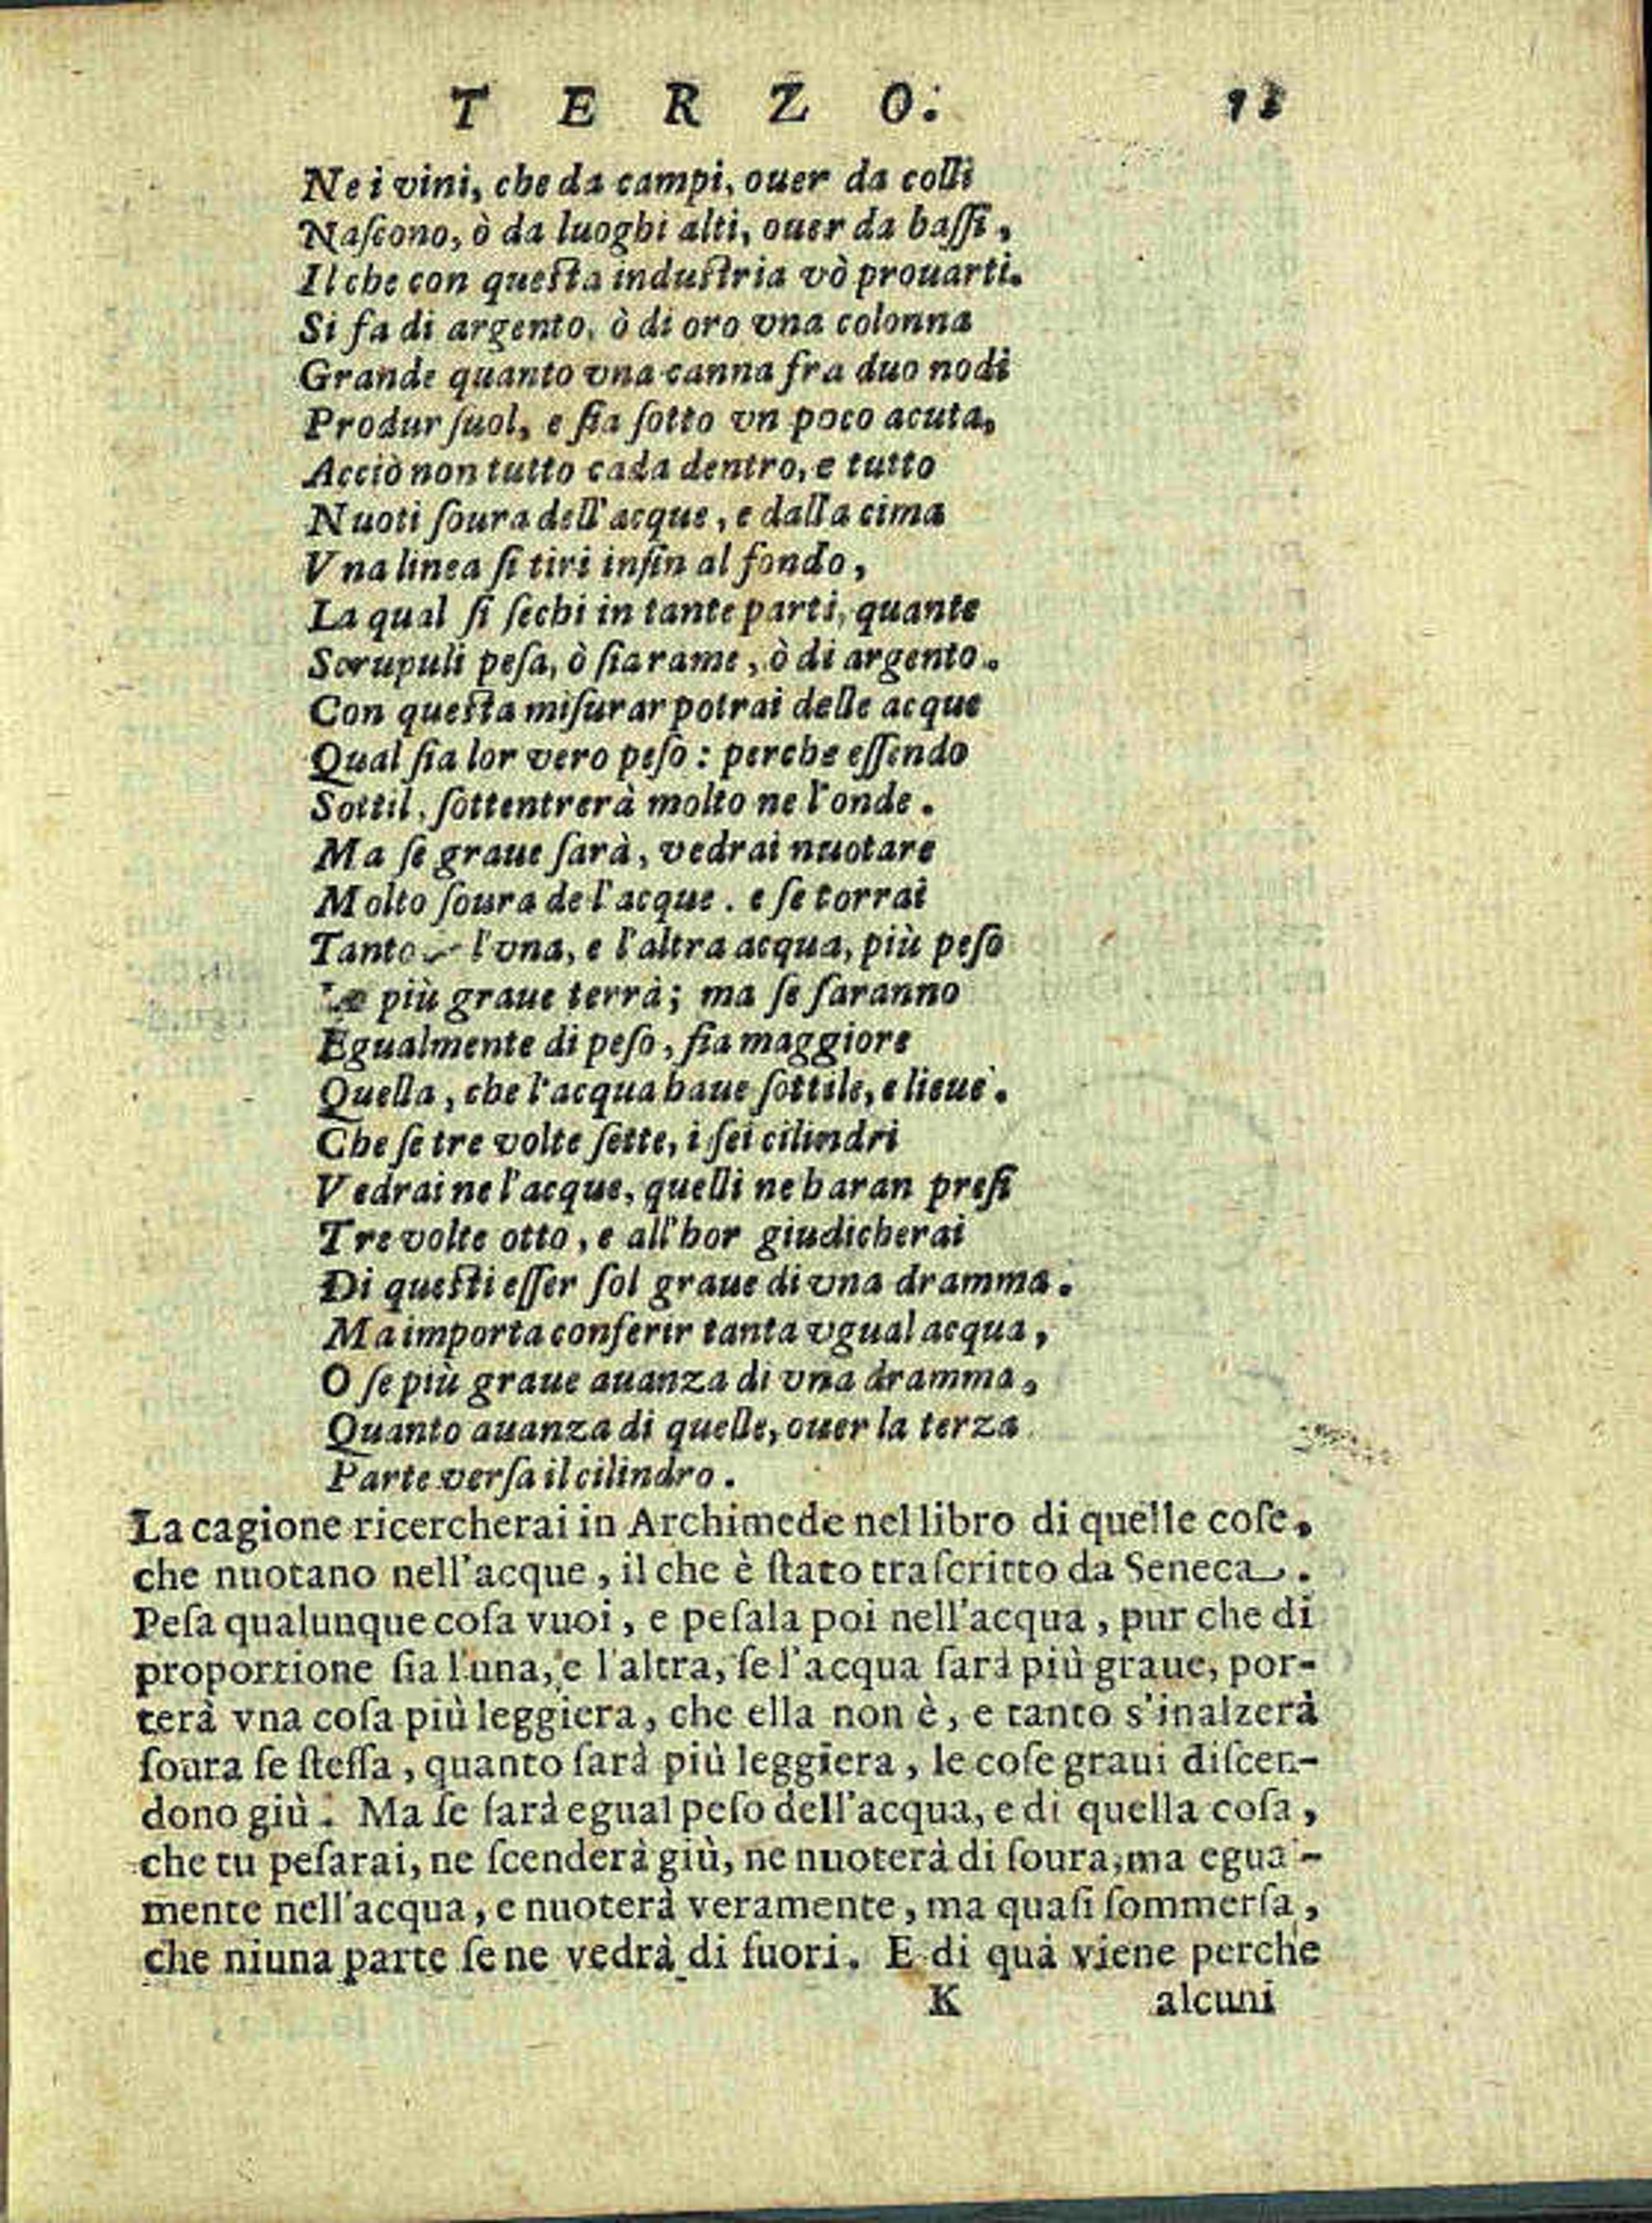 TERZO.
Ne i vini, che da campi, ouer da colli
Naſcono, ò da luoghi alti, ouer da baſſi,
Il che con queſta induſtria vò prouarti.
Si fa di argento, ò di oro vna colonna
Grande quanto vna canna fra duo nodi
Produr ſuol, e ſia ſotto vn poco acuta,
Acciò non tutto cada dentro, e tutto
Nuoti ſoura dell'acque, e dalla cima
Vna linea ſi tiri inſin al fondo,
La qual ſi ſechi in tante parti, quante
Scrupuli peſa, ò ſia rame, ò di argento.
Con queſta miſurar potrai delle acque
Qual ſia lor vero peſo: perche eſſendo
Sottil, ſottentrerà molto ne l'onde.
Ma ſe graue ſarà, vedrai nuotare
Molto ſoura de l'acque. e ſe torrai
Tanto l'vna, e l'altra acqua, più peſo
più graue terrà; ma ſe ſaranno
Egualmente di peſo, ſia maggiore
Quella, che l'acqua haue ſottile, e lieue.
Che ſe tre volte ſette, i ſei cilindri
Vedrai ne l'acque, quelli ne haran preſi
Tre volte otto, e all'hor giudicherai
Di queſti eſſer ſol graue di vna dramma.
Ma importa conferir tanta vgual acqua,
O ſe più graue auanza di vna dramma,
Quanto auanza di quelle, ouer la terza
Parte verſa il cilindro.
La cagione ricercherai in Archimede nel libro di quelle coſe,
che nuotano nell'acque, il che è ſtato traſcritto da Seneca.
Peſa qualunque coſa vuoi, e peſala poi nell'acqua, pur che di
proportione ſia l'una, e l'altra, ſe l'acqua ſarà più graue, por-
terà vna coſa più leggiera, che ella non è, e tanto s'inalzerà
ſoura ſe ſteſſa, quanto ſarà più leggiera, le coſe graui diſcen-
dono giù. Ma ſe ſarà egual peſo dell'acqua, e di quella coſa,
che tu peſarai, ne ſcenderà giù, ne nuoterà di ſoura, ma egual-
mente nell'acqua, e nuoterà veramente, ma quaſi ſommerſa,
che niuna parte ſe ne vedrà di fuori. E di quà viene perche
K alcuni